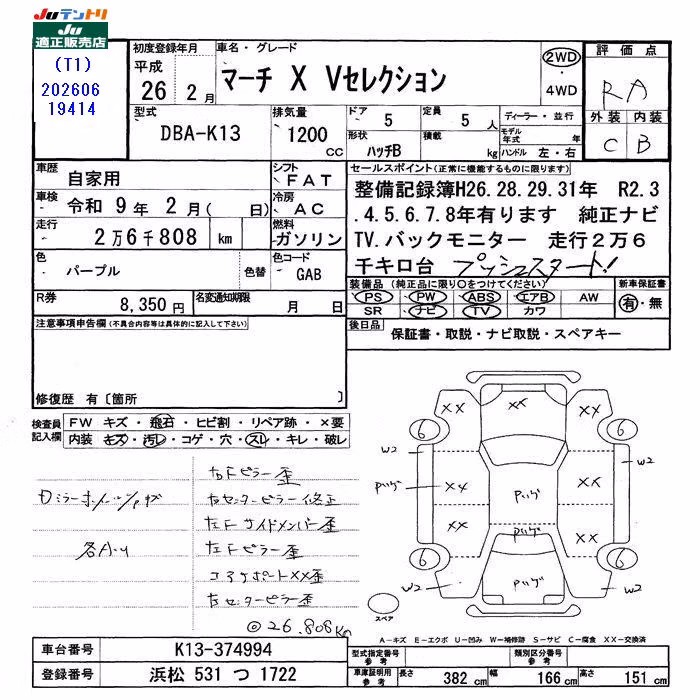 Juテントリ
Ju
適正販売店
(T1)
202606
19414
初度登録年月
平成
26 2月
車名・グレード
マーチ X Vセレクション
2WD
・
4WD
評価点
RA
外装 内装
C B
型式
DBA-K13
排気量
1200
CC
ドア
5
定員
5 人
形状
ハッチB
積載
kg
ディーラー・並行
モデル年式 年
ハンドル 左・右
車歴
自家用
シフト
FAT
車検
令和 9年 2月( 日)
冷房
AC
走行
2万6千808 km
燃料
ガソリン
色
パープル
色替
色コード
GAB
R券
8,350円
名変通知期限
月 日
セールスポイント(正常に機能するものに限ります)
整備記録簿H26.28.29.31年 R2.3
.4.5.6.7.8年有ります 純正ナビ
TV.バックモニター 走行2万6
千キロ台 プッシュスタート!
装備品(純正品に限り○をつけてください)
PS PW ABS エアB AW
SR ナビ TV カワ
新車保証書
有・無
後日品
保証書・取説・ナビ取説・スペアキー
注意事項申告欄(不具合内容等は具体的に記入して下さい)
修復歴 有〔箇所 〕
検査員
記入欄
FW キズ・飛石・ヒビ割・リペア跡・×要
内装 キズ・汚レ・コゲ・穴・スレ・キレ・破レ
右Fピラー歪
右センターピラー修正
左Fサイドメンバー歪
左Fピラー歪
コアサポートXX歪
左センターピラー歪
各A・U
@26.808Km
XX
XX
XX
6
6
W2
W2
XX
XX
XX
XX
6
6
W2
W2
スペア
A－キズ E－エクボ U－凹み W－補修跡 S－サビ C－腐食 XX－交換済
車台番号
K13-374994
登録番号
浜松 531 つ 1722
型式指定番号
参考
類別区分番号
参考
車庫証明用
参考
長さ
382 cm
幅
166 cm
高さ
151 cm